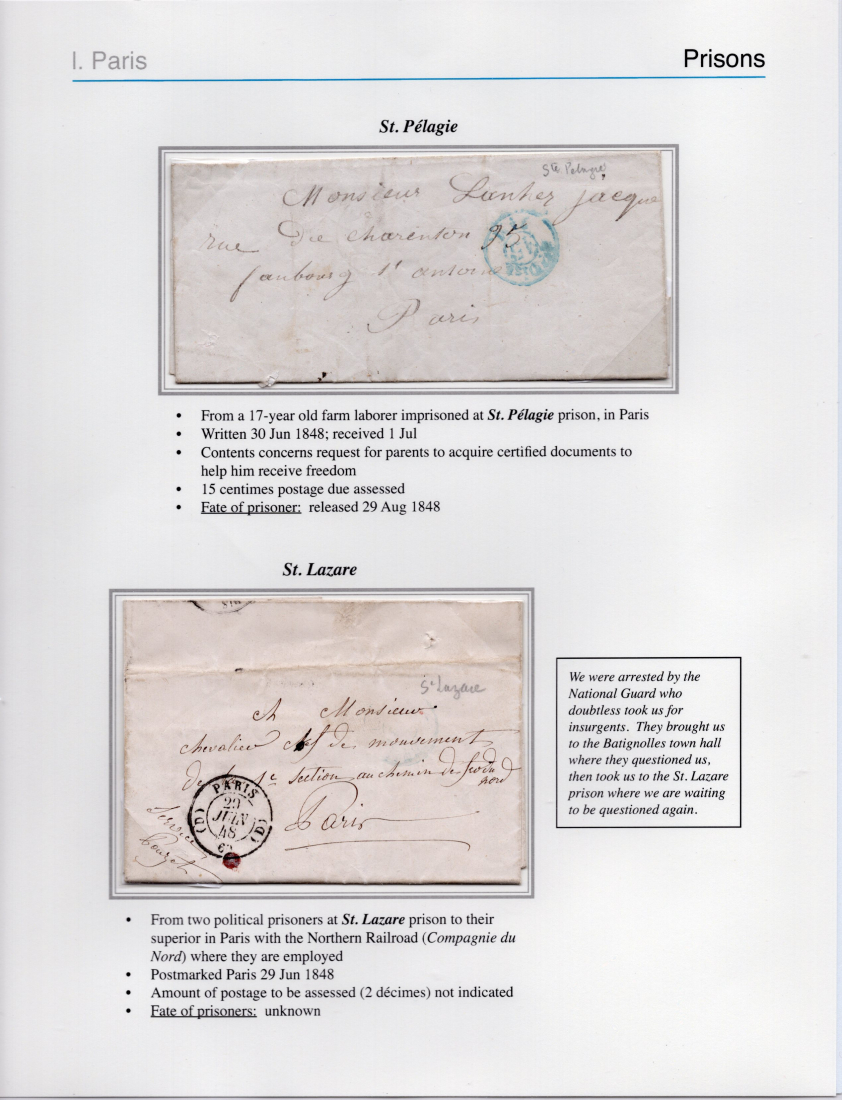 I. Paris
Prisons
St. Pélagie
Ste Pelagie
Monsieur Lanher jacque
rue De charenton 25
faubourg st antoine
Paris
• From a 17-year old farm laborer imprisoned at St. Pélagie prison, in Paris
• Written 30 Jun 1848; received 1 Jul
• Contents concerns request for parents to acquire certified documents to
help him receive freedom
• 15 centimes postage due assessed
• Fate of prisoner: released 29 Aug 1848
St. Lazare
St Lazare
A Monsieur
chevalier chef de mouvement
De la 1e Section au chemin de fer du
nord
Paris
PARIS
29
JUIN
48
(D) (D)
We were arrested by the
National Guard who
doubtless took us for
insurgents. They brought us
to the Batignolles town hall
where they questioned us,
then took us to the St. Lazare
prison where we are waiting
to be questioned again.
• From two political prisoners at St. Lazare prison to their
superior in Paris with the Northern Railroad (Compagnie du
Nord) where they are employed
• Postmarked Paris 29 Jun 1848
• Amount of postage to be assessed (2 décimes) not indicated
• Fate of prisoners: unknown